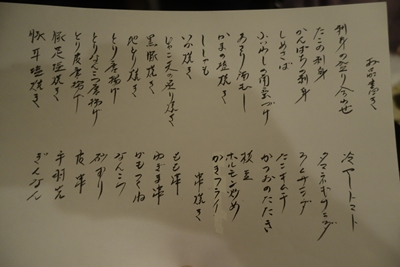 お品書き
刺身の盛り合わせ
たこの刺身
かんぱち刺身
しめさば
あさり酒むし
かまの塩焼き
ししゃも
いか焼き
じゃこ天の炙り焼き
黒豚焼き
地どり焼き
とり唐揚げ
とりなんこつ唐揚げ
とり皮唐揚げ
豚足塩焼き
豚耳塩焼き
冷やしトマト
タマネギサラダ
ハムサラダ
たこキムチ
かつおのたたき
枝豆
ホルモン炒め
かきフライ
串焼き
もも串
ねぎま串
なんこつ
砂ずり
皮串
手羽先
ぎんなん